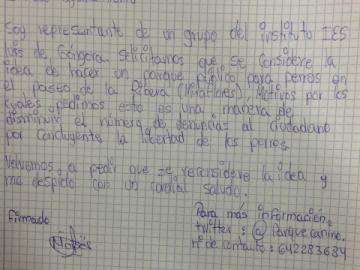 Soy representante de un grupo del instituto IES
Luis de Góngora. Solicitamos que se considere la
idea de hacer un parque público para perros en
el paseo de la Ribera (Miraflores), Motivos por los
cuales pedimos esto es una manera de
disminuir el número de denuncias al ciudadano
por concluyente la libertad de los perros.
Volvemos a pedir que se reconsidere la idea y
me despido con un cordial saludo.
Firmado
Para más información,
twitter: @Parquecanino.
nº de contacto: 642283684